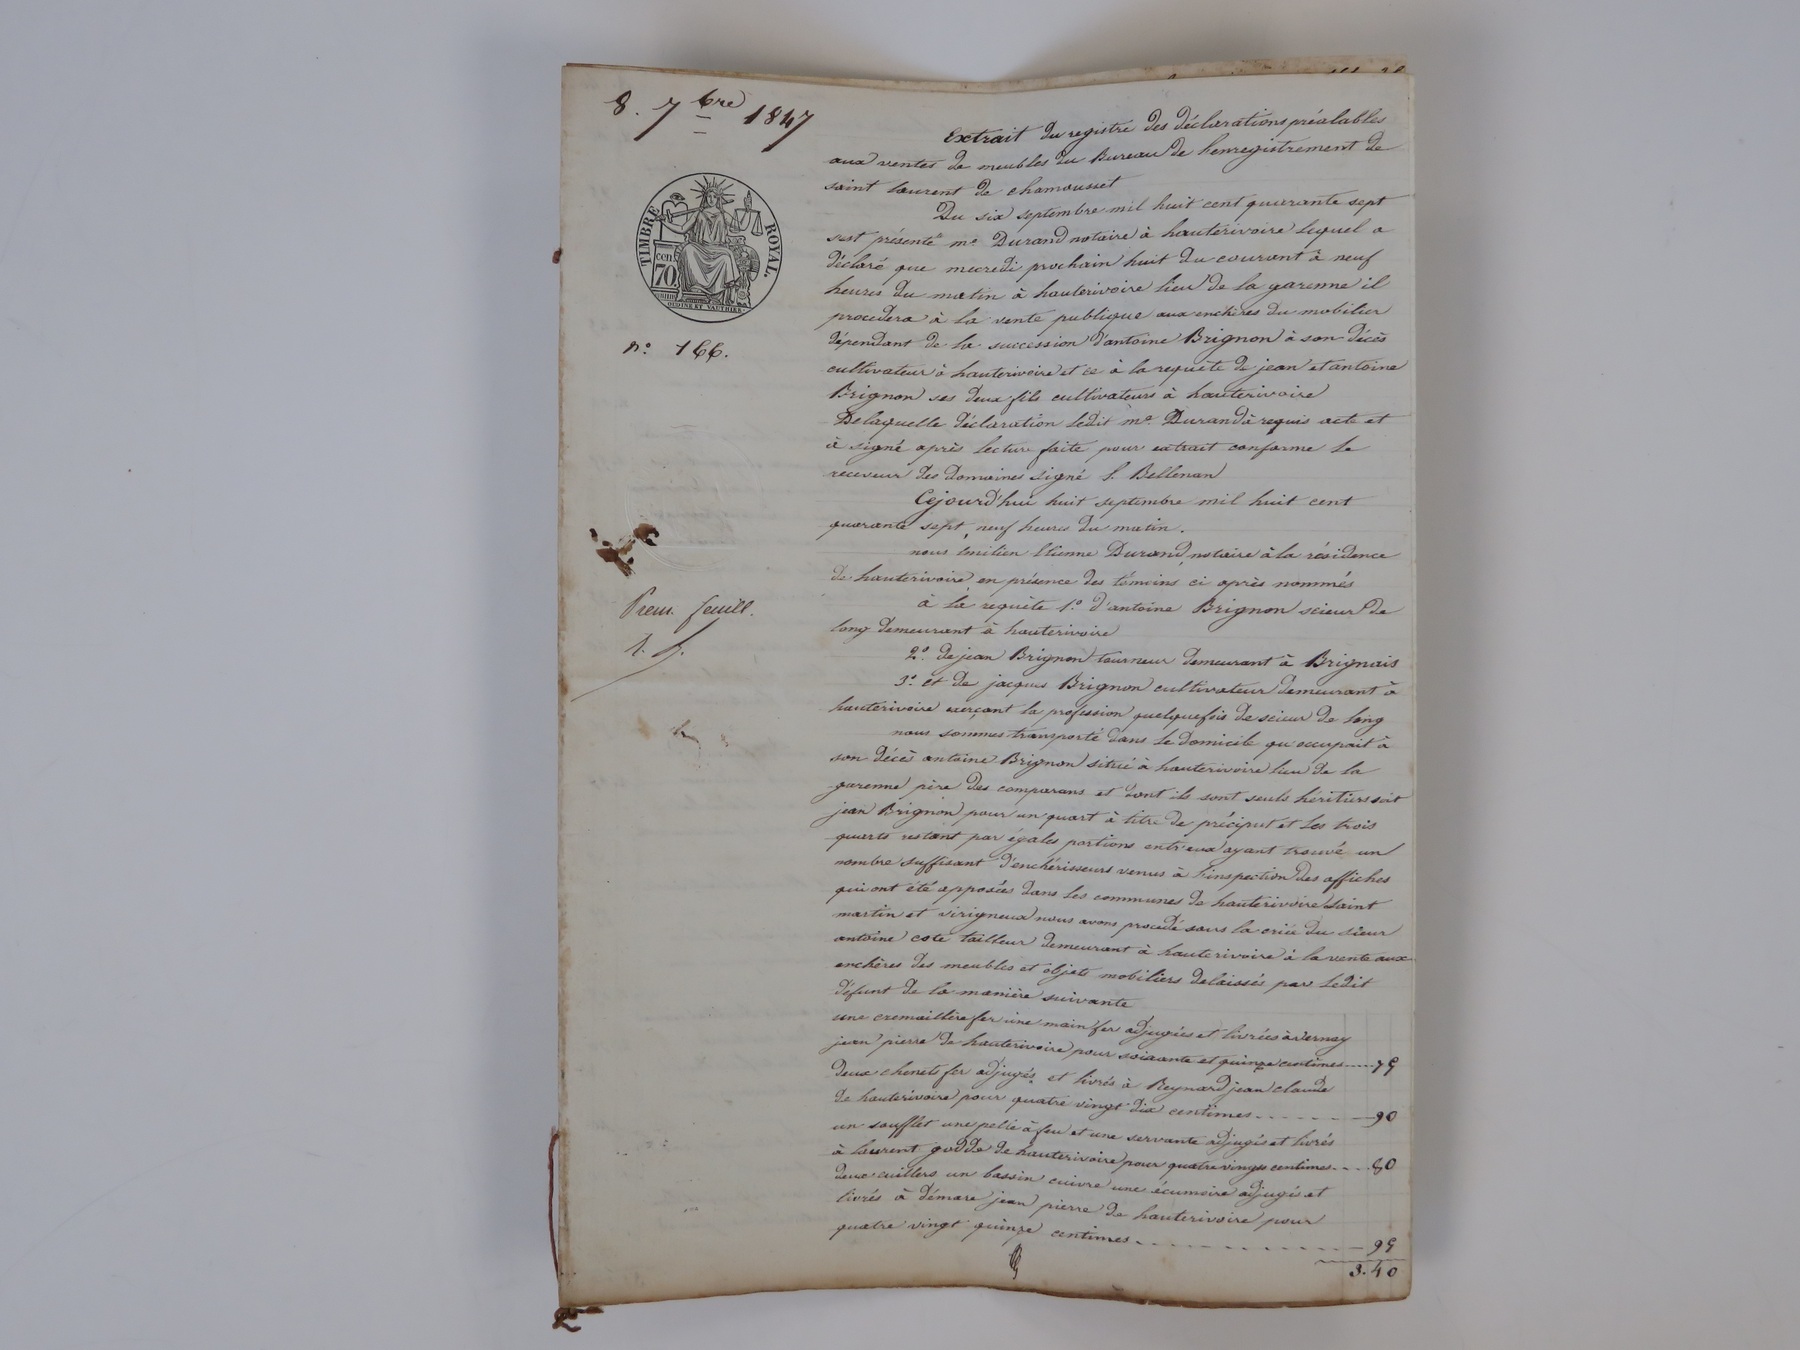 8. 7bre 1847
TIMBRE ROYAL.
cen.
70
OUDINÉ ET VAUTHIER
n° 166.
Prem. feuill.
Extrait du registre des déclarations préalables
aux ventes de meubles du Bureau de l'enregistrement de
saint laurent de chamousset
Du six septembre mil huit cent quarante sept
s'est présenté me Durand notaire à hauterivoire lequel a
déclaré que mecredi prochain huit du courant à neuf
heures du matin à hauterivoire lieu de la garenne il
procedera à la vente publique aux enchères du mobilier
dépendant de la succession d'antoine Brignon à son décès
cultivateur à hauterivoire et ce à la requête de jean et antoine
Brignon ses deux fils cultivateurs à hauterivoire
De laquelle déclaration ledit me Durand à requis acte et
à signé après lecture faite pour extrait conforme le
receveur des domaines signé S. Bellenan
Cejourd'hui huit septembre mil huit cent
quarante sept, neuf heures du matin.
nous émilien Etienne Durand, notaire à la résidence
de hauterivoire en présence des témoins ci après nommés
à la requête 1.° d'antoine Brignon scieur de
long demeurant à hauterivoire
2.° de jean Brignon tourneur demeurant à Brignais
3.° et de jacques Brignon cultivateur demeurant à
hauterivoire exerçant la profession quelquefois de scieur de long
nous sommes transporté dans le domicile qu'occupait à
son décès antoine Brignon situé à hauterivoire lieu de la
garenne père des comparans et dont ils sont seuls héritiers soit
jean Brignon pour un quart à titre de préciput et les trois
quarts restant par égales portions entr'eux ayant trouvé un
nombre suffisant d'enchérisseurs venus à l'inspection des affiches
qui ont été apposées dans les communes de hauterivoire saint
martin et virigneux nous avons procédé sous la criée du sieur
antoine cote tailleur demeurant à hauterivoire à la vente aux
enchères des meubles et objets mobiliers delaissés par ledit
défunt de la manière suivante
une cremaillère fer une main fer adjugées et livrées à vernay
jean pierre de hauterivoire pour soixante et quinze centimes 75
deux chenets fer adjugés et livrés à Reynard jean claude
de hauterivoire pour quatre vingt dix centimes 90
un soufflet une pelle à feu et une servante adjugés et livrés
à laurent godde de hauterivoire pour quatre vingts centimes 80
deux cuillers un bassin cuivre une écumoire adjugés et
livrés à démare jean pierre de hauterivoire pour
quatre vingt quinze centimes 95
3.40